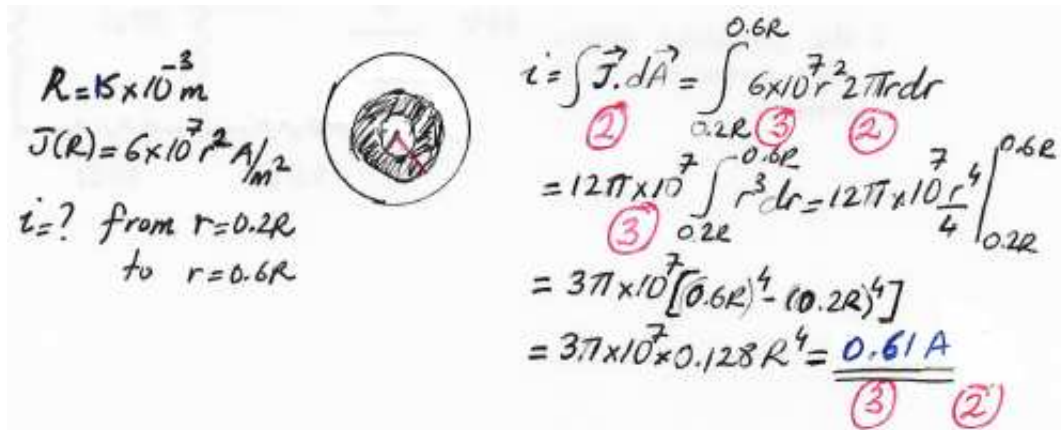 R=15×10⁻³m
J(R)=6×10⁷r² A/m²
i=? from r=0.2R
to r=0.6R
i=∫J⃗.dA⃗=∫_{0.2R}^{0.6R} 6×10⁷r²2πrdr
② ③ ②
=12π×10⁷∫_{0.2R}^{0.6R} r³dr=12π×10⁷ r⁴/4 |_{0.2R}^{0.6R}
③
=3π×10⁷[(0.6R)⁴-(0.2R)⁴]
=3π×10⁷×0.128R⁴=0.61A
③ ②